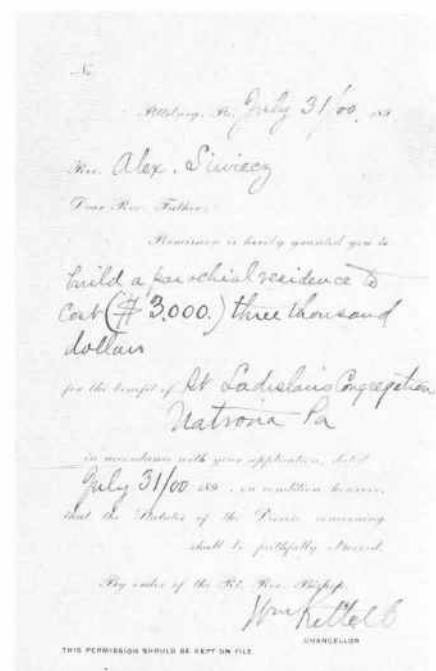 No
Pittsburg, Pa. July 31/00, 189
Rev. Alex. Siwiecz
Dear Rev. Father:
Permission is hereby granted you to
build a parochial residence to
cost ($ 3,000.) three thousand
dollars
for the benefit of St Ladislaus Congregation
Natrona Pa
in accordance with your application, dated
July 31/00 189 , on condition however,
that the Statutes of the Diocese concerning
shall be faithfully observed.
By order of the Rt. Rev. Bishop,
CHANCELLOR
THIS PERMISSION SHOULD BE KEPT ON FILE.